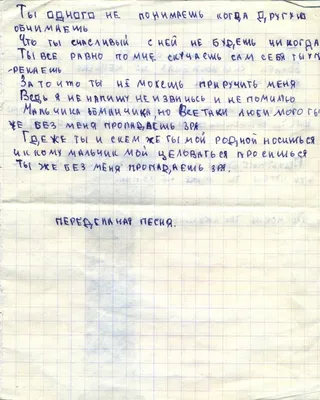 Ты одного не понимаешь когда другую
обнимаешь
Что ты счасливый с ней не будешь никогда
Ты всё равно по мне скучаешь сам себя ты уп
рекаешь
За то что ты не можешь приручить меня
Ведь я не напишу не извинюсь и не помилю
мальчика обманчика, но всетаки любимого ты
же без меня пропадаешь зря
Где же ты и с кем же ты мой родной носишься
и к кому мальчик мой целоваться просишься
Ты же без меня пропадаешь зря.
Переделаная песня.